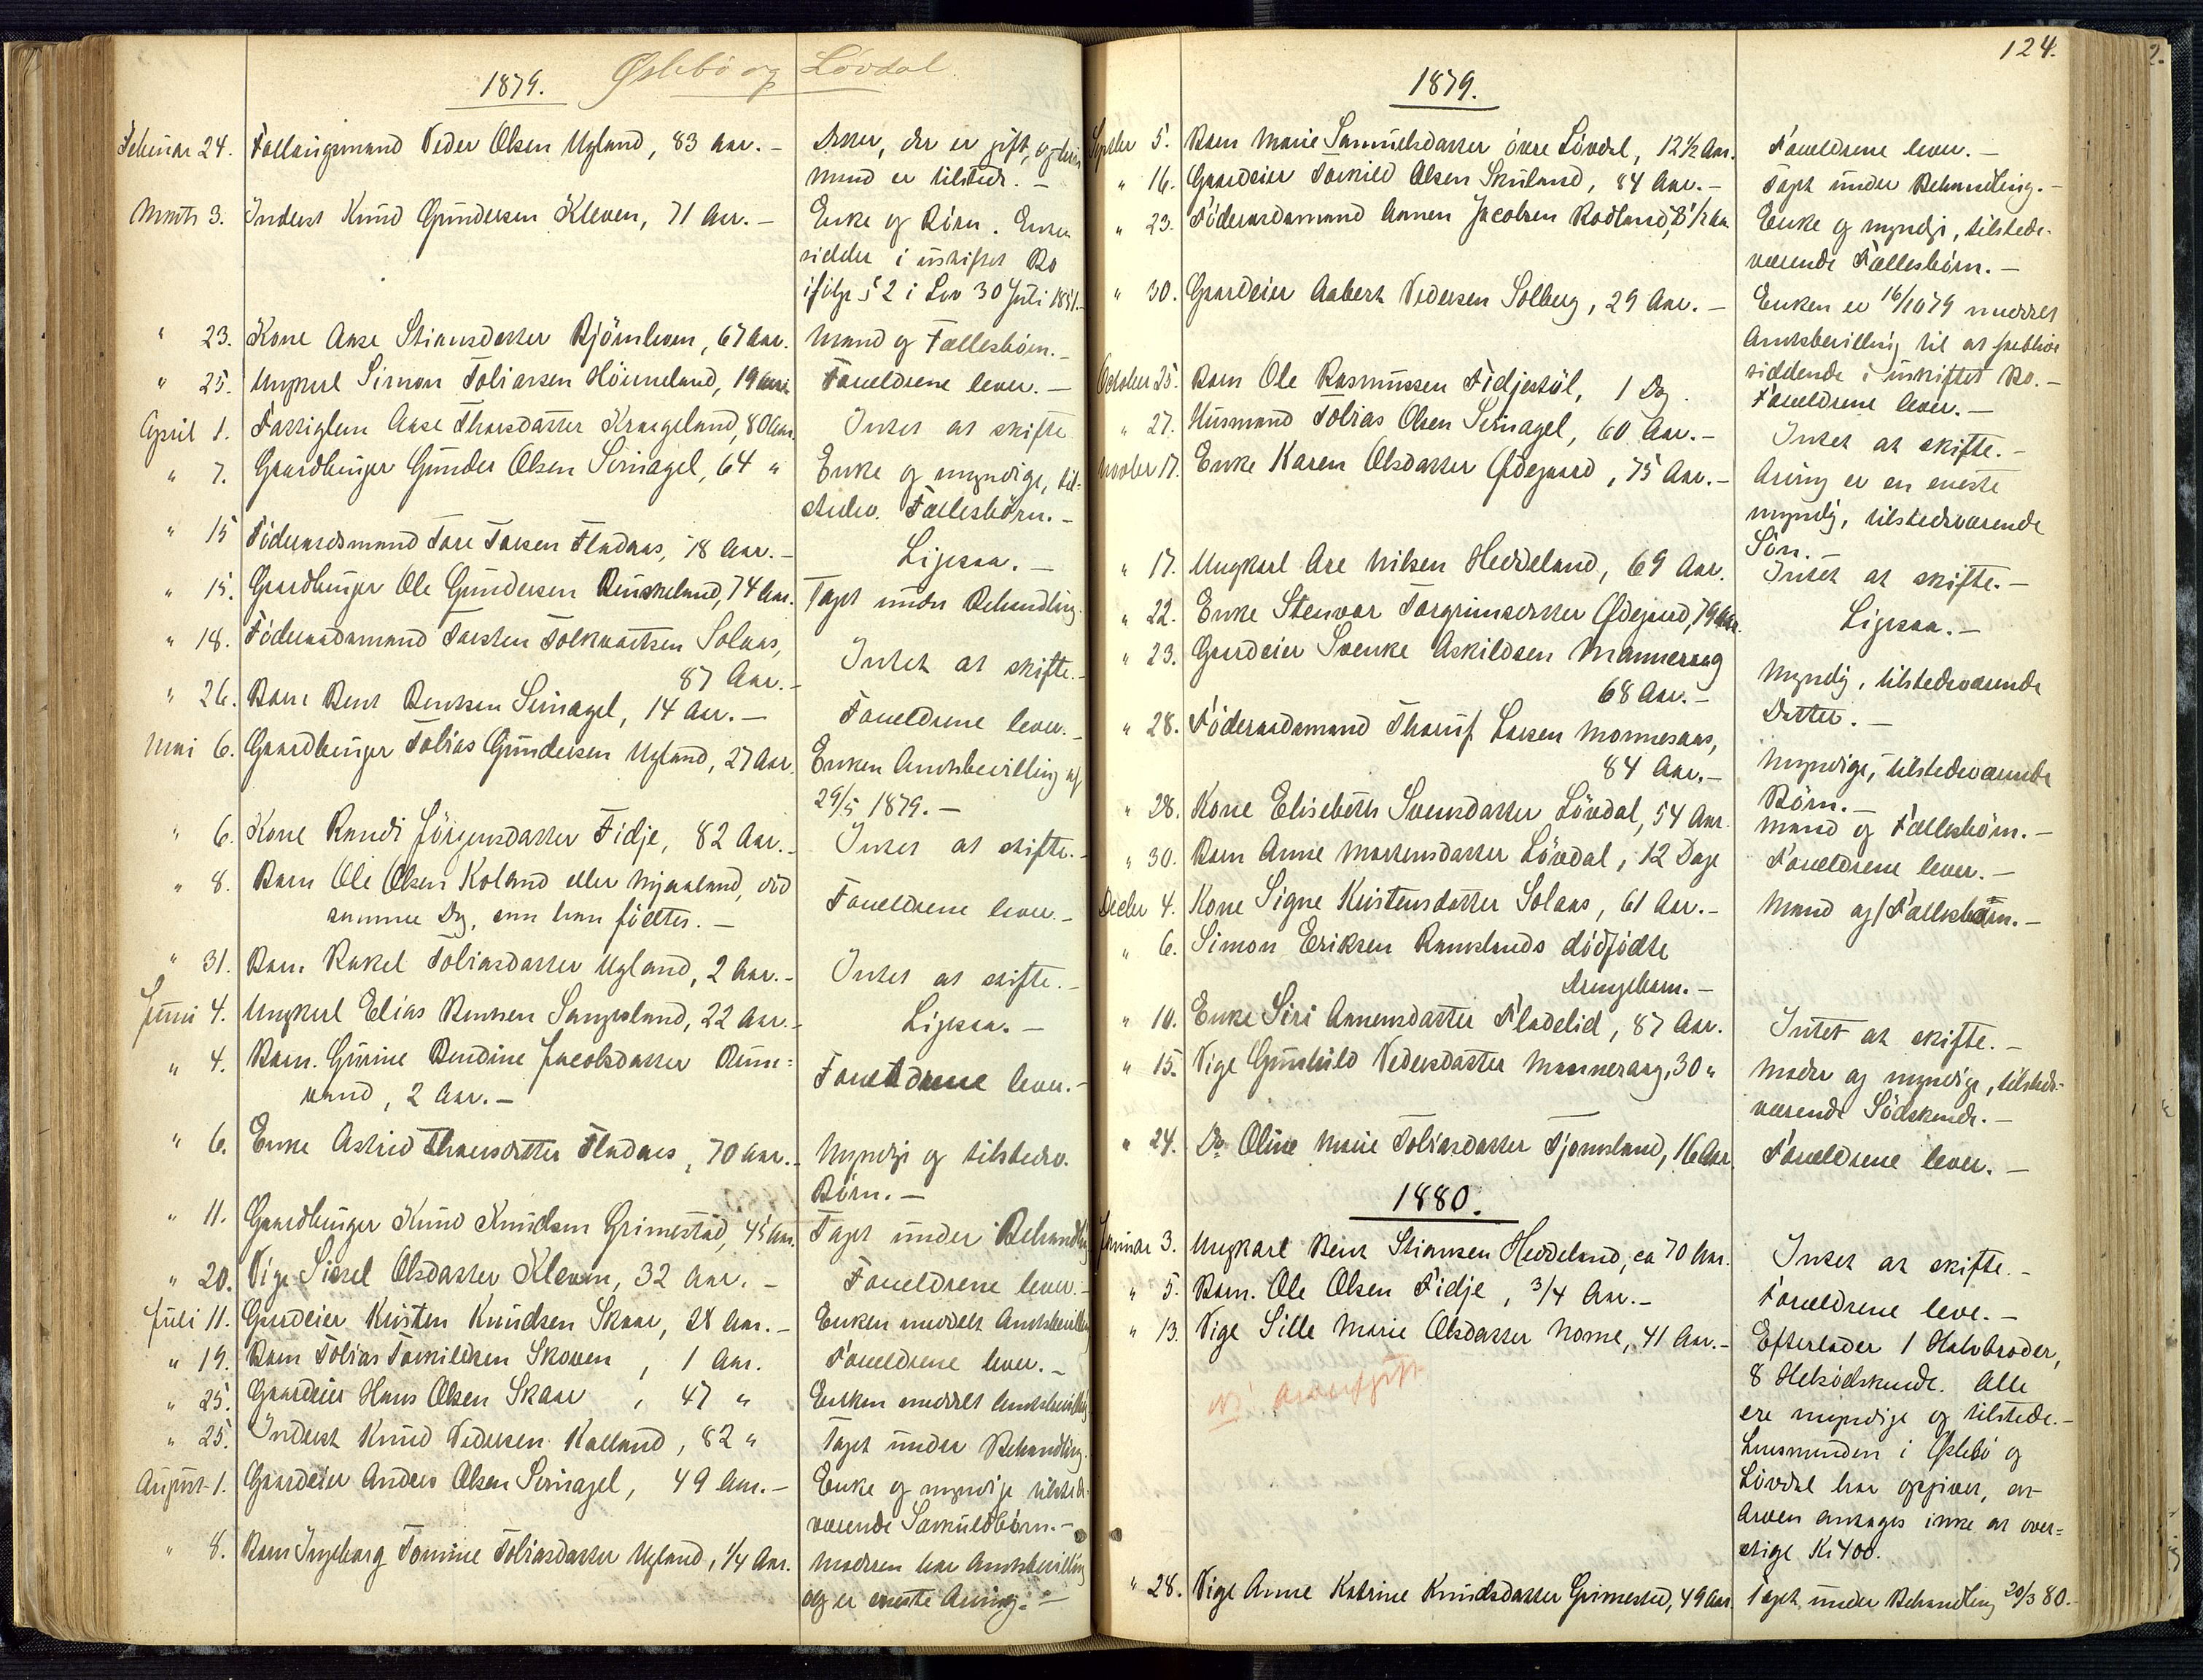 Øslebö og Lövdal
1879.
Februar 24. Fattiglemsmand Peder Olsen Ugland, 83 Aar. — Datter, der er gift, og hvis
Mand er tilstede. —
Marts 3. Inderst Knud Gundersen Kleven, 71 Aar. — Enke og Börn. Enken
sidder i uskiftet Bo
ifölge § 2 i Lov 30 Juli 1851. —
" 23. Kone Aase Stiansdatter Björnlien, 67 Aar. Mand og Fællesbörn. —
" 25. Ungkarl Simon Tobiassen Hönneland, 19 Aar. Forældrene lever. —
April 1. Fattiglem Aase Thorsdatter Kraageland, 80 Aar. Intet at skifte
" 7. Gaardbruger Gunder Olsen Sirnagel, 64 " Enke og myndige, til-
stedev. Fællesbörn. —
" 15 Föderaadsmand Tore Torsen Fladaas, 78 Aar. — Ligesaa. —
" 15. Gaardbruger Ole Gundersen Runskeland, 74 Aar. Taget under Behandling.
" 18. Föderaadsmand Torsten Tolkvartsen Solaas,
87 Aar. — Intet at skifte. —
" 26. Barn Bent Bentsen Sirnagel, 14 Aar. — Forældrene lever. —
Mai 6. Gaardbruger Tobias Gundersen Ugland, 27 Aar. Enken Amtsbevilling af
29/5 1879. —
" 6. Kone Randi Jörgensdatter Fidje, 82 Aar. — Intet at skifte. —
" 8. Barn Ole Olsen Koland eller Mjaaland, död
samme Dag, som han födtes. — Forældrene lever. —
" 31. Barn Rakel Tobiasdatter Ugland, 2 Aar. — Intet at skifte. —
Juni 4. Ungkarl Elias Bentsen Sangesland, 22 Aar. — Ligesaa. —
" 4. Barn. Gurine Bendine Jacobsdatter Drive-
vand, 2 Aar. — Forældrene lever. —
" 6. Enke Astrid Thorsdatter Fladaas, 70 Aar. — Myndige og tilstedev.
Börn. —
" 11. Gaardbruger Knud Knudsen Grimestad, 45 Aar. Taget under Behandling
" 20. Pige Sissel Olsdatter Kleven, 32 Aar. — Forældrene lever. —
Juli 11. Gaardeier Kristen Knudsen Skaar, 28 Aar. — Enken meddelt Amtsbevilling
" 19. Barn Tobias Torkildsen Skoven, 1 Aar. Forældrene lever. —
" 25. Gaardeier Hans Olsen Skaar, 47 " Enken meddelt Amtsbevilling
" 25. Inderst Knud Pedersen Kalland, 82 " Taget under Behandling.
August 1. Gaardeier Anders Olsen Sirnagel, 49 Aar. — Enke og myndige tilstede-
værende Særkuldbörn. —
" 8. Barn Ingeborg Tomine Tobiasdatter Ugland, 1/4 Aar. Moderen har Amtsbevilling
og er eneste Arving. —
124.
1879.
Septbr 5. Barn Marie Samuelsdatter övre Lövdal, 12 1/2 Aar. Forældrene lever. —
" 16. Gaardeier Torkild Olsen Skuland, 84 Aar. — Taget under Behandling. —
" 23. Föderaadsmand Aanen Jacobsen Rodland, 81 1/2 Aar Enke og myndige, tilstede-
værende Fællesbörn. —
" 30. Gaardeier Aabert Pedersen Solberg, 29 Aar. — Enken er 16/10 79 meddelt
Amtsbevilling til at forblive
siddende i uskiftet Bo. —
October 25. Barn Ole Rasmussen Fidjestöl, 1 Dag. Forældrene lever. —
" 27. Husmand Tobias Olsen Sirnagel, 60 Aar. — Intet at skifte. —
Novber 17. Enke Karen Olsdatter Ödegaard, 75 Aar. — Arving er en eneste
myndig, tilstedeværende
Sön. —
" 17. Ungkarl Are Nilsen Heddeland, 69 Aar. Intet at skifte. —
" 22. Enke Stenvor Torgrimsdatter Ödegaard, 79 Aar. Ligesaa. —
" 23. Gaardeier Svenke Askildsen Manneraag
68 Aar. — Myndig, tilstedeværende
Datter. —
" 28. Föderaadsmand Thoruf Larsen Monnesaas,
84 Aar. — Myndige, tilstedeværende
Börn. —
" 28. Kone Elisebeth Svensdatter Lövdal, 54 Aar. Mand og Fællesbörn. —
" 30. Barn Anne Mortensdatter Lövdal, 12 Dage Forældrene lever. —
Decbr 4. Kone Signe Kristensdatter Solaas, 61 Aar. — Mand og Fællesbörn. —
" 6. Simon Eriksen Ramslands dödfödte
Drengebarn. —
" 10. Enke Siri Aanensdatter Fladelid, 87 Aar. Intet at skifte. —
" 15. Pige Gunhild Pedersdatter Manneraag, 30 " Moder og myndige, tilstede-
værende Södskende. —
" 24. Do Oline Marie Tobiasdatter Tjomsland, 16 Aar. Forældrene lever. —
1880.
Januar 3. Ungkarl Bent Stiansen Heddeland, ca 70 Aar. Intet at skifte. —
" 5. Barn. Ole Olsen Fidje, 3/4 Aar. — Forældrene leve. —
" 13. Pige Sille Marie Olsdatter Nome, 41 Aar. — Efterlader 1 Halvbroder,
8 Helsödskende. Alle
ere myndige og tilstede. —
Lensmanden i Øslebö og
Lövdal har opgivet, at
Arven antages ikke at over-
stige Kr 400.
Arveafgift
" 28. Pige Anne Katrine Knudsdatter Grimestad, 49 Aar. Taget under Behandling 20/3 80. —